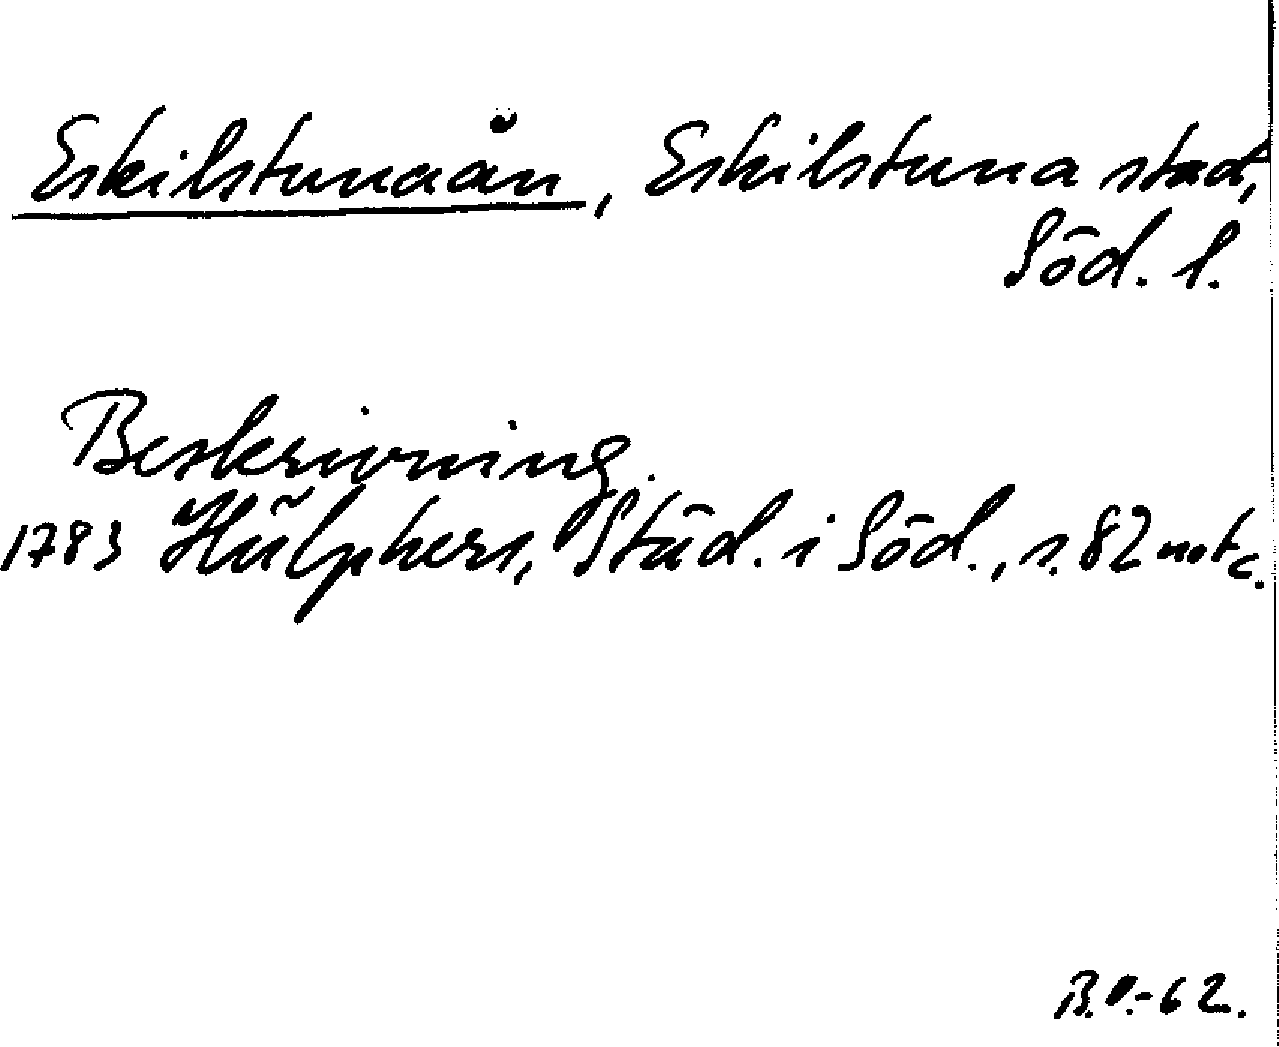 Eskilstunaån, Eskilstuna stad,
Söd. l.
Beskrivning.
1783 Hülphers, Städ. i Söd., s. 82 not c.
B.O.-62.